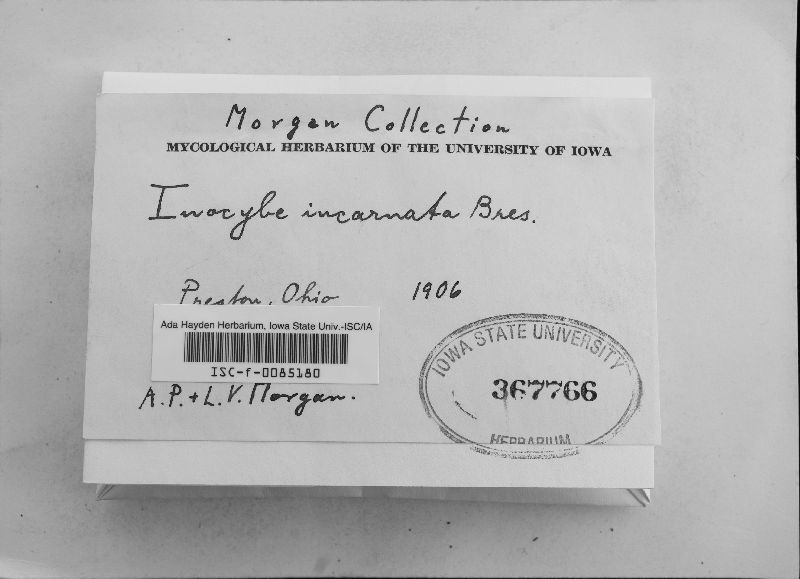 Morgan Collection
MYCOLOGICAL HERBARIUM OF THE UNIVERSITY OF IOWA
Inocybe incarnata Bres.
Preston, Ohio 1906
Ada Hayden Herbarium, Iowa State Univ.-ISC/IA
ISC-f-0085180
A.P. + L.V. Morgan.
IOWA STATE UNIVERSITY
367766
HERBARIUM